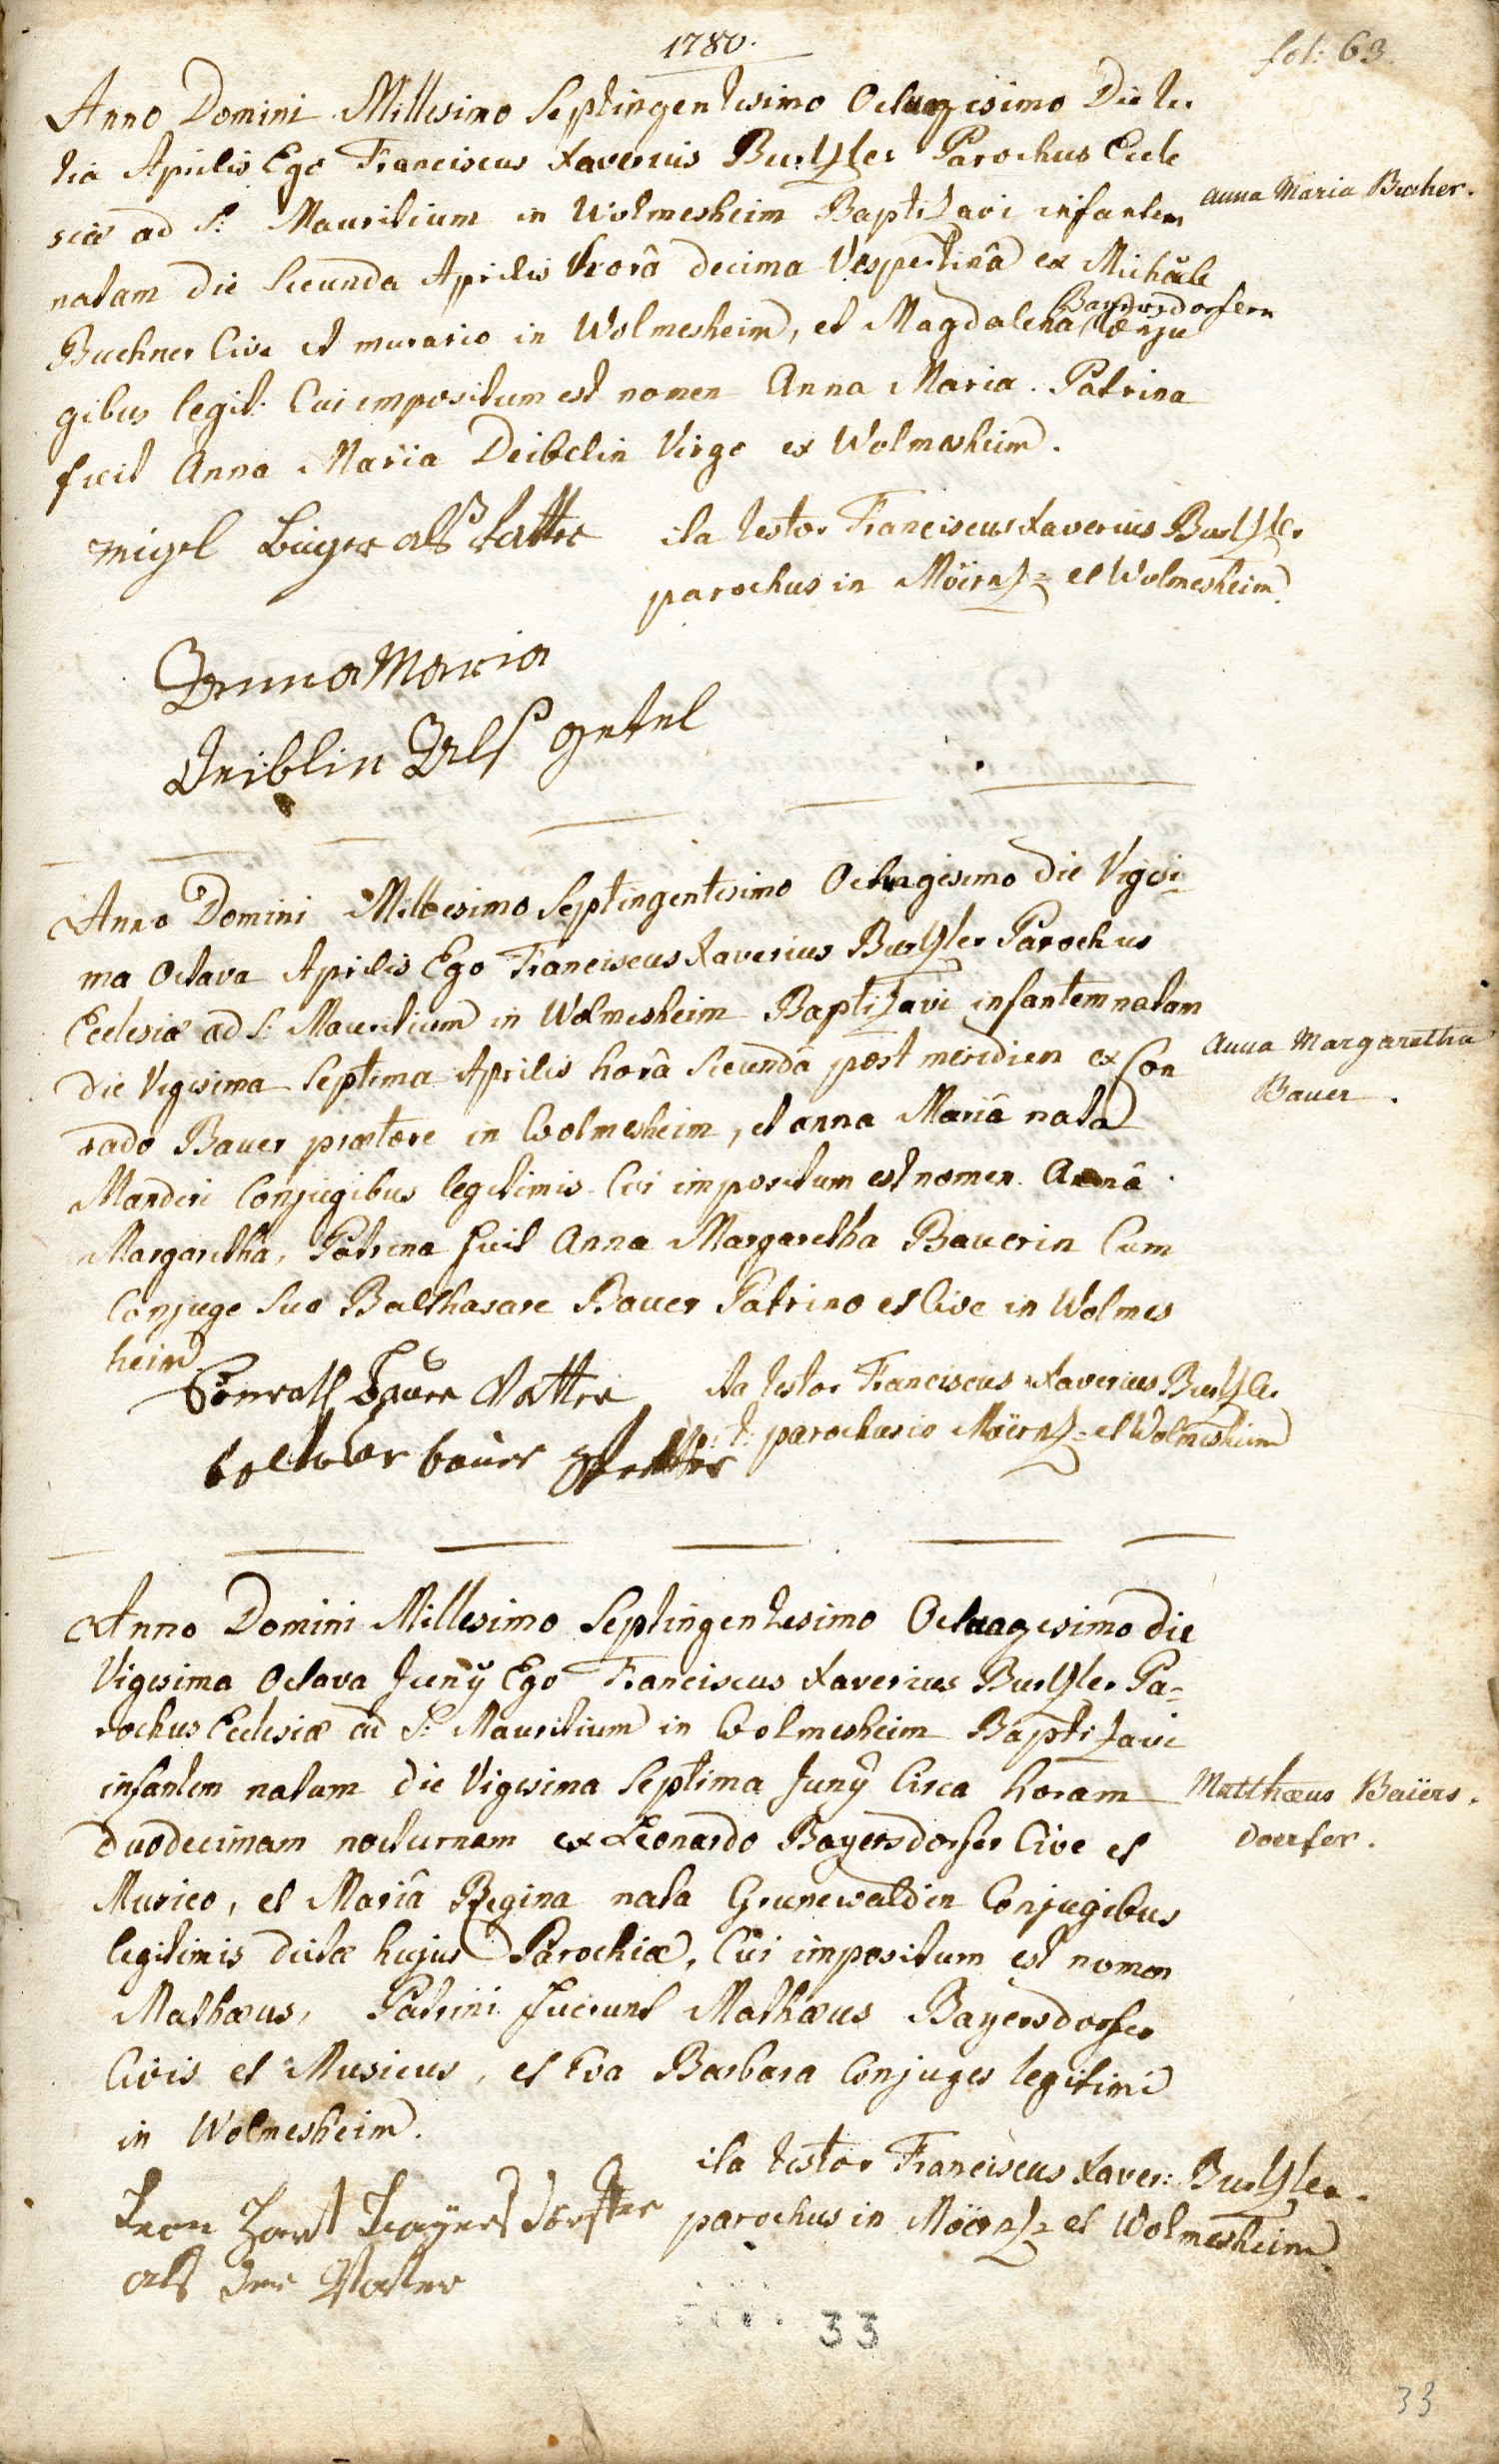 1780.
fol: 63.
Anno Domini Millesimo Septingentesimo Octuagesimo Die ter
tia Aprilis Ego Franciscus Xaverius Parochus Eccle
siæ ad S: Mauritium in Wolmesheim Baptizavi infantem
Anna Maria Bucher.
natam die Secunda Aprilis horâ decima Vespertinâ ex Michäele
Bayersdorfern
Buchner Cive et murario in Wolmesheim, et Magdalena Conju
gibus legit: Cui impositum est nomen Anna Maria. Patrina
fuit Anna Maria Deibelin Virgo ex Wolmesheim.
migel als Vatter
ita testor Franciscus Xaverius
parochus in Mörzh= et Wolmesheim.
Anna Maria
Deiblin Als getel
Anno Domini Millesimo Septingentesimo Octuagesimo die Vigesi
ma Octava Aprilis Ego Franciscus Xaverius Parochus
Ecclesiæ ad S: Mauritium in Wolmesheim Baptizavi infantem natam
die Vigesima Septima Aprilis horâ Secundâ post meridiem ex Con
Anna Margaretha
Bauer.
rado Bauer prætore in Wolmesheim, et anna Mariâ nata
Manderi Conjugibus legitimis. Cui impositum est nomen Anna
Margaretha, Patrina fuit Anna Margaretha Bauerin Cum
Conjuge Suo Balthasare Bauer Patrino et Cive in Wolmes
heim.
Conrath Bauer Vatter
ita testor Franciscus Xaverius
p: t: parochus in et Wolmesheim
bauer
Anno Domini Millesimo Septingentesimo Octuagesimo die
Vigesima Octava Junÿ Ego Franciscus Xaverius Pa=
rochus Ecclesiæ ad S: Mauritium in Wolmesheim Baptizavi
infantem natum die Vigesima Septima Junÿ Circa horam
Matthæus Baiers.
doerfer.
duodecimam nocturnam ex Leonardo Bayersdorfer Cive et
Musico, et Mariâ Regina nata Grunewaldin Conjugibus
legitimis dictæ hujus Parochiæ, Cui impositum est nomen
Mathæus, Patrini fuerunt Mathæus Bayersdorfer
Civis et Musicus, et Eva Barbara Conjuges legitimi
in Wolmesheim.
ita testor Franciscus Xaver:
Leon Hart Bayersdörffer
parochus in et Wolmesheim
als der Vatter
33
33